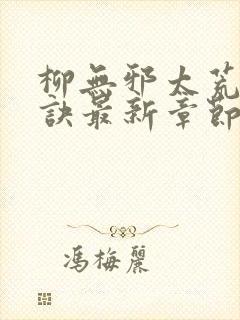 柳無邪太荒
訣最新章節
馮梅麗